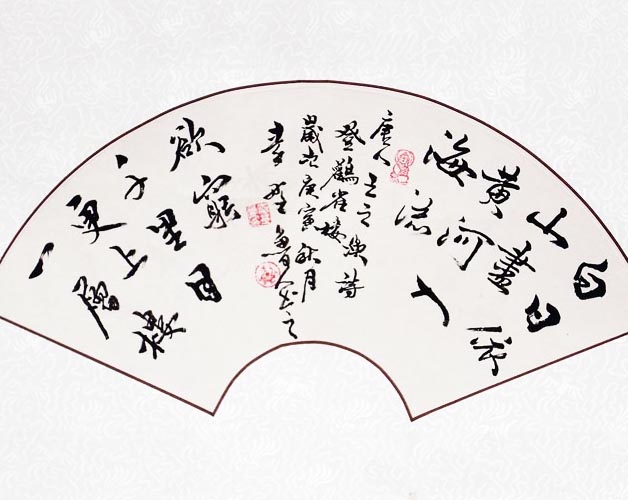 白日依
山盡
黃河入
海流
唐人王之渙詩
登鸛雀樓
歲次庚寅秋月
欲窮
千里目
更上
一層樓